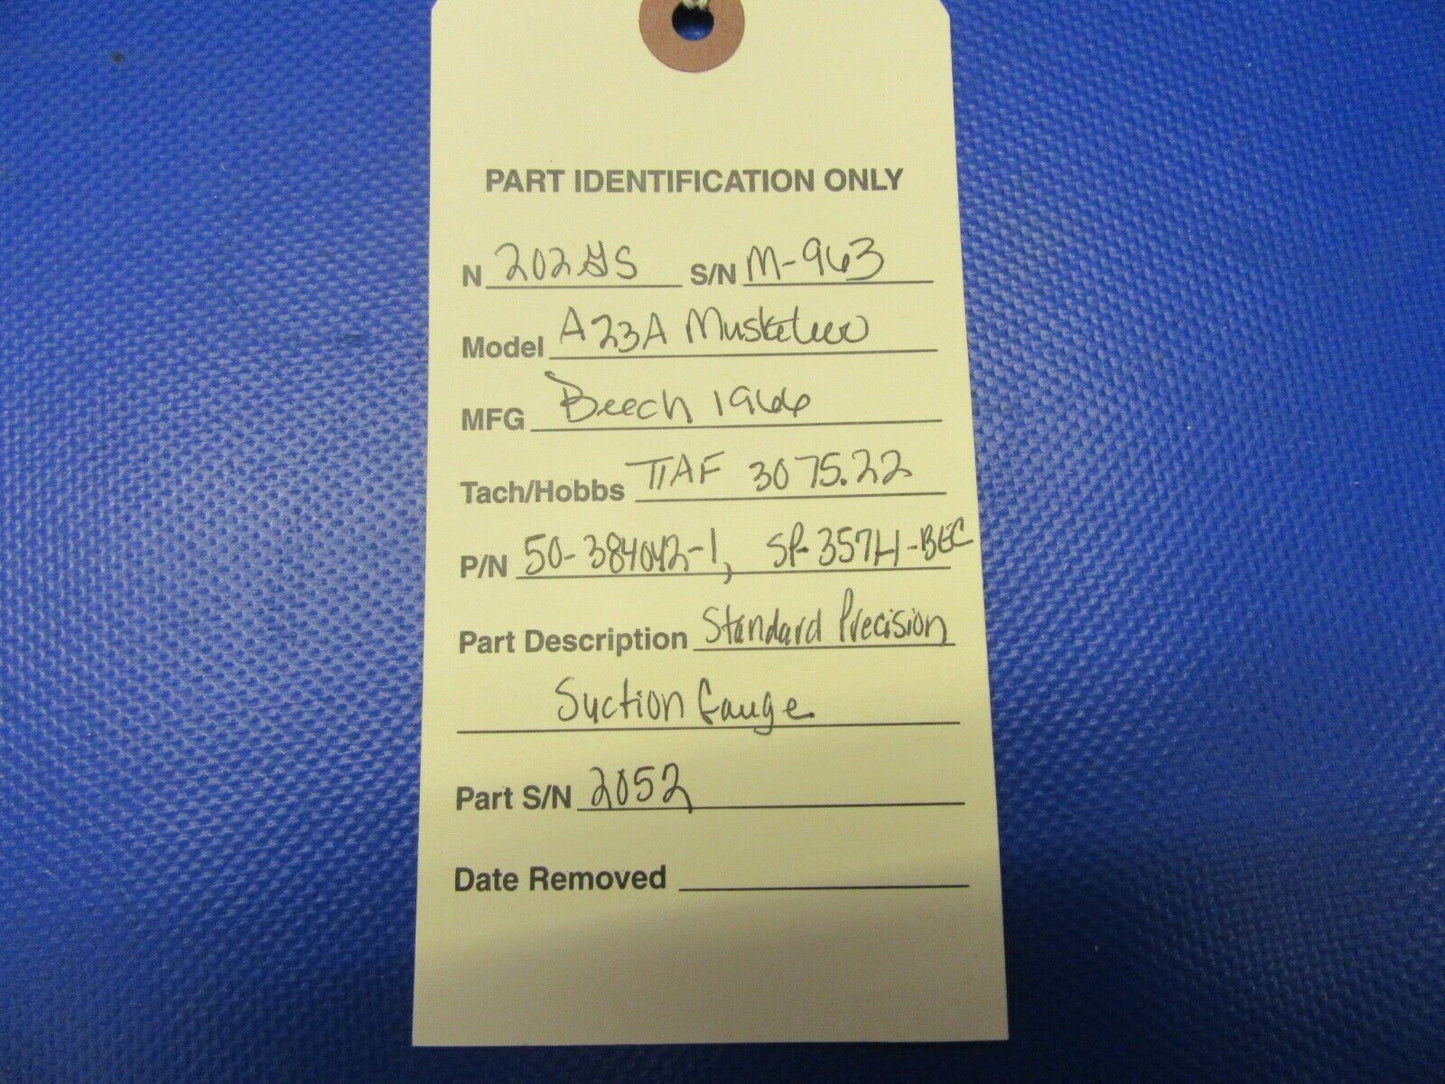 PART IDENTIFICATION ONLY
N 202GS S/N M-963
Model A23A Musketeer
MFG Beech 1966
Tach/Hobbs TTAF 3075.22
P/N 50-384042-1, SP-357H-BEC
Part Description Standard Precision
Suction Gauge
Part S/N 2052
Date Removed